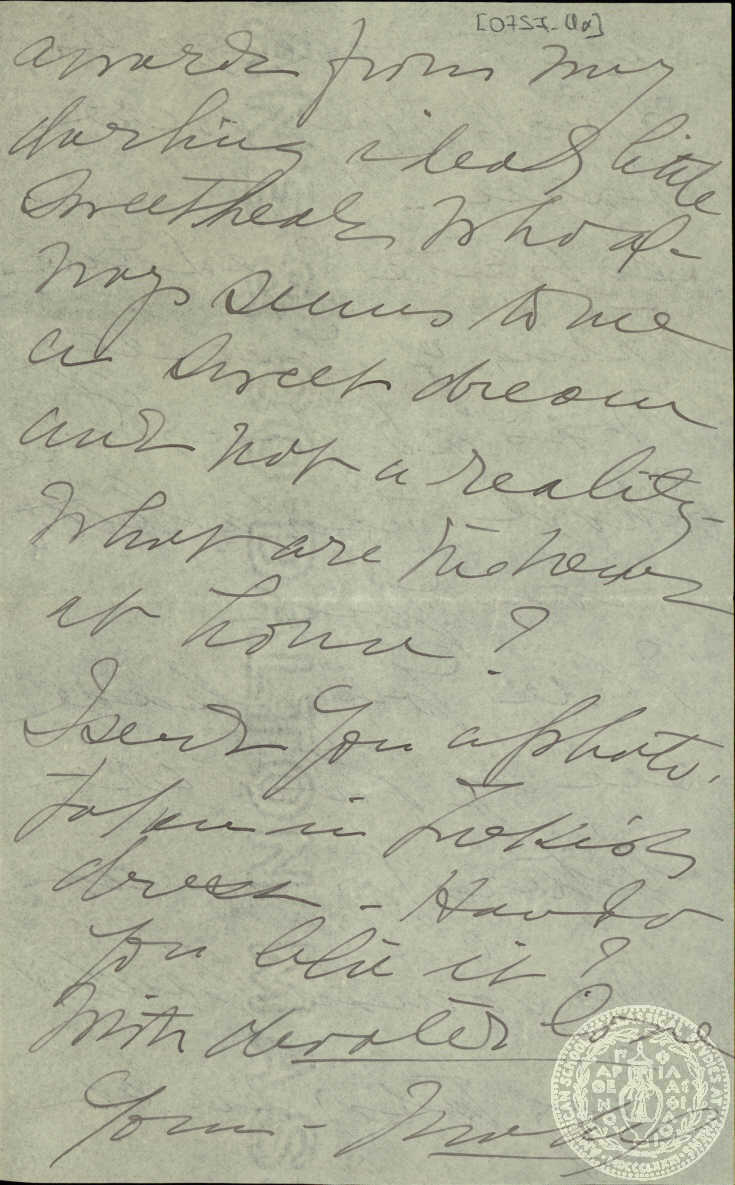 awards from my
darling ideal little
Sweetheart, who al-
ways seems to me
a sweet dream
and not a reality
What are the news
at home?
I send you a photo,
taken in Turkish
dress - How do
you like it?
With devoted love
Your -